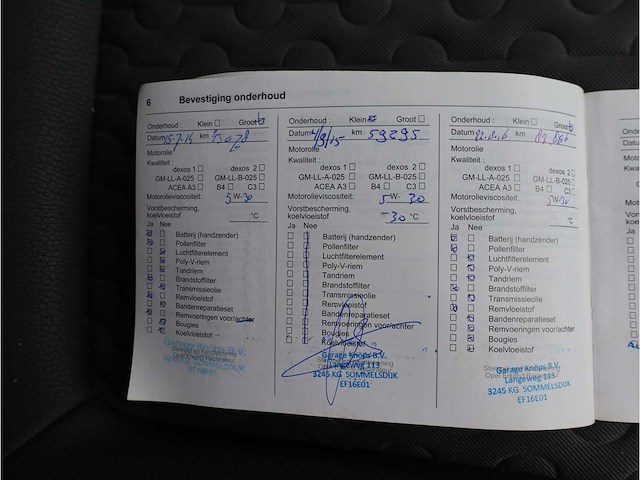 6 Bevestiging onderhoud
Onderhoud : Klein Groot
Datum km
Motorolie
Kwaliteit :
dexos 1 dexos 2
GM-LL-A-025 GM-LL-B-025
ACEA A3 B4 C3
Motorolieviscositeit: 5W-30
Vorstbescherming,
koelvloeistof °C
Ja Nee
Batterij (handzender)
Pollenfilter
Luchtfilterelement
Poly-V-riem
Tandriem
Brandstoffilter
Transmissieolie
Remvloeistof
Bandenreparatieset
Remvoeringen voor/achter
Bougies
Koelvloeistof
Garage Knöps B.V.
Onderhoud : Klein Groot
Datum km 59295
Motorolie
Kwaliteit :
dexos 1 dexos 2
GM-LL-A-025 GM-LL-B-025
ACEA A3 B4 C3
Motorolieviscositeit: 5W-30
Vorstbescherming,
koelvloeistof -30 °C
Ja Nee
Batterij (handzender)
Pollenfilter
Luchtfilterelement
Poly-V-riem
Tandriem
Brandstoffilter
Transmissieolie
Remvloeistof
Bandenreparatieset
Remvoeringen voor/achter
Bougies
Koelvloeistof
Garage Knöps B.V.
Langeweg 113
3245 KG SOMMELSDIJK
EF16E01
Onderhoud : Klein Groot
Datum km
Motorolie
Kwaliteit :
dexos 1 dexos 2
GM-LL-A-025 GM-LL-B-025
ACEA A3 B4 C3
Motorolieviscositeit: 5W-30
Vorstbescherming,
koelvloeistof °C
Ja Nee
Batterij (handzender)
Pollenfilter
Luchtfilterelement
Poly-V-riem
Tandriem
Brandstoffilter
Transmissieolie
Remvloeistof
Bandenreparatieset
Remvoeringen voor/achter
Bougies
Koelvloeistof
Garage Knöps B.V.
Langeweg 113
3245 KG SOMMELSDIJK
EF16E01